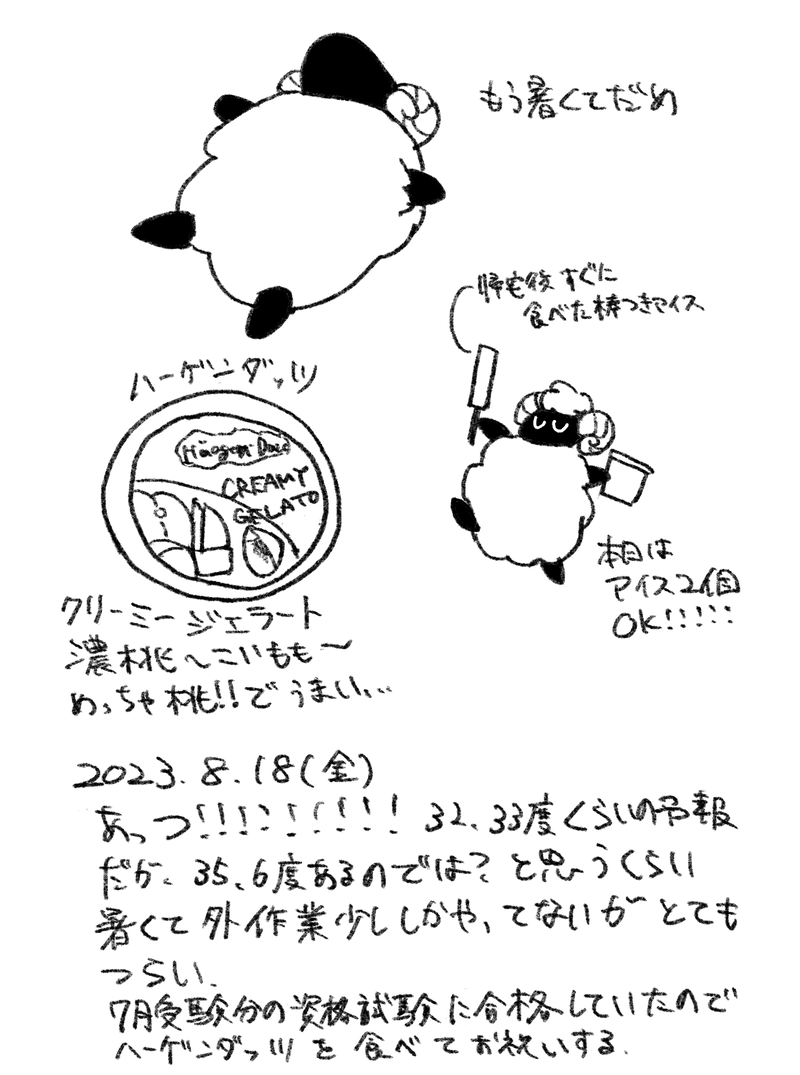 もう暑くてだめ
帰宅後すぐに
食べた棒つきアイス
ハーゲンダッツ
Häagen-Dazs
CREAMY
GELATO
本日は
アイス2個
OK!!!!!
クリーミージェラート
濃桃〜こいもも〜
めっちゃ桃!!でうまい...
2023.8.18(金)
あっつ!!!!!!!!! 32、33度くらいの予報
だが、35、6度あるのでは?と思うくらい
暑くて外作業少ししかやってないがとても
つらい。
7月受験分の資格試験に合格していたので
ハーゲンダッツを食べてお祝いする。